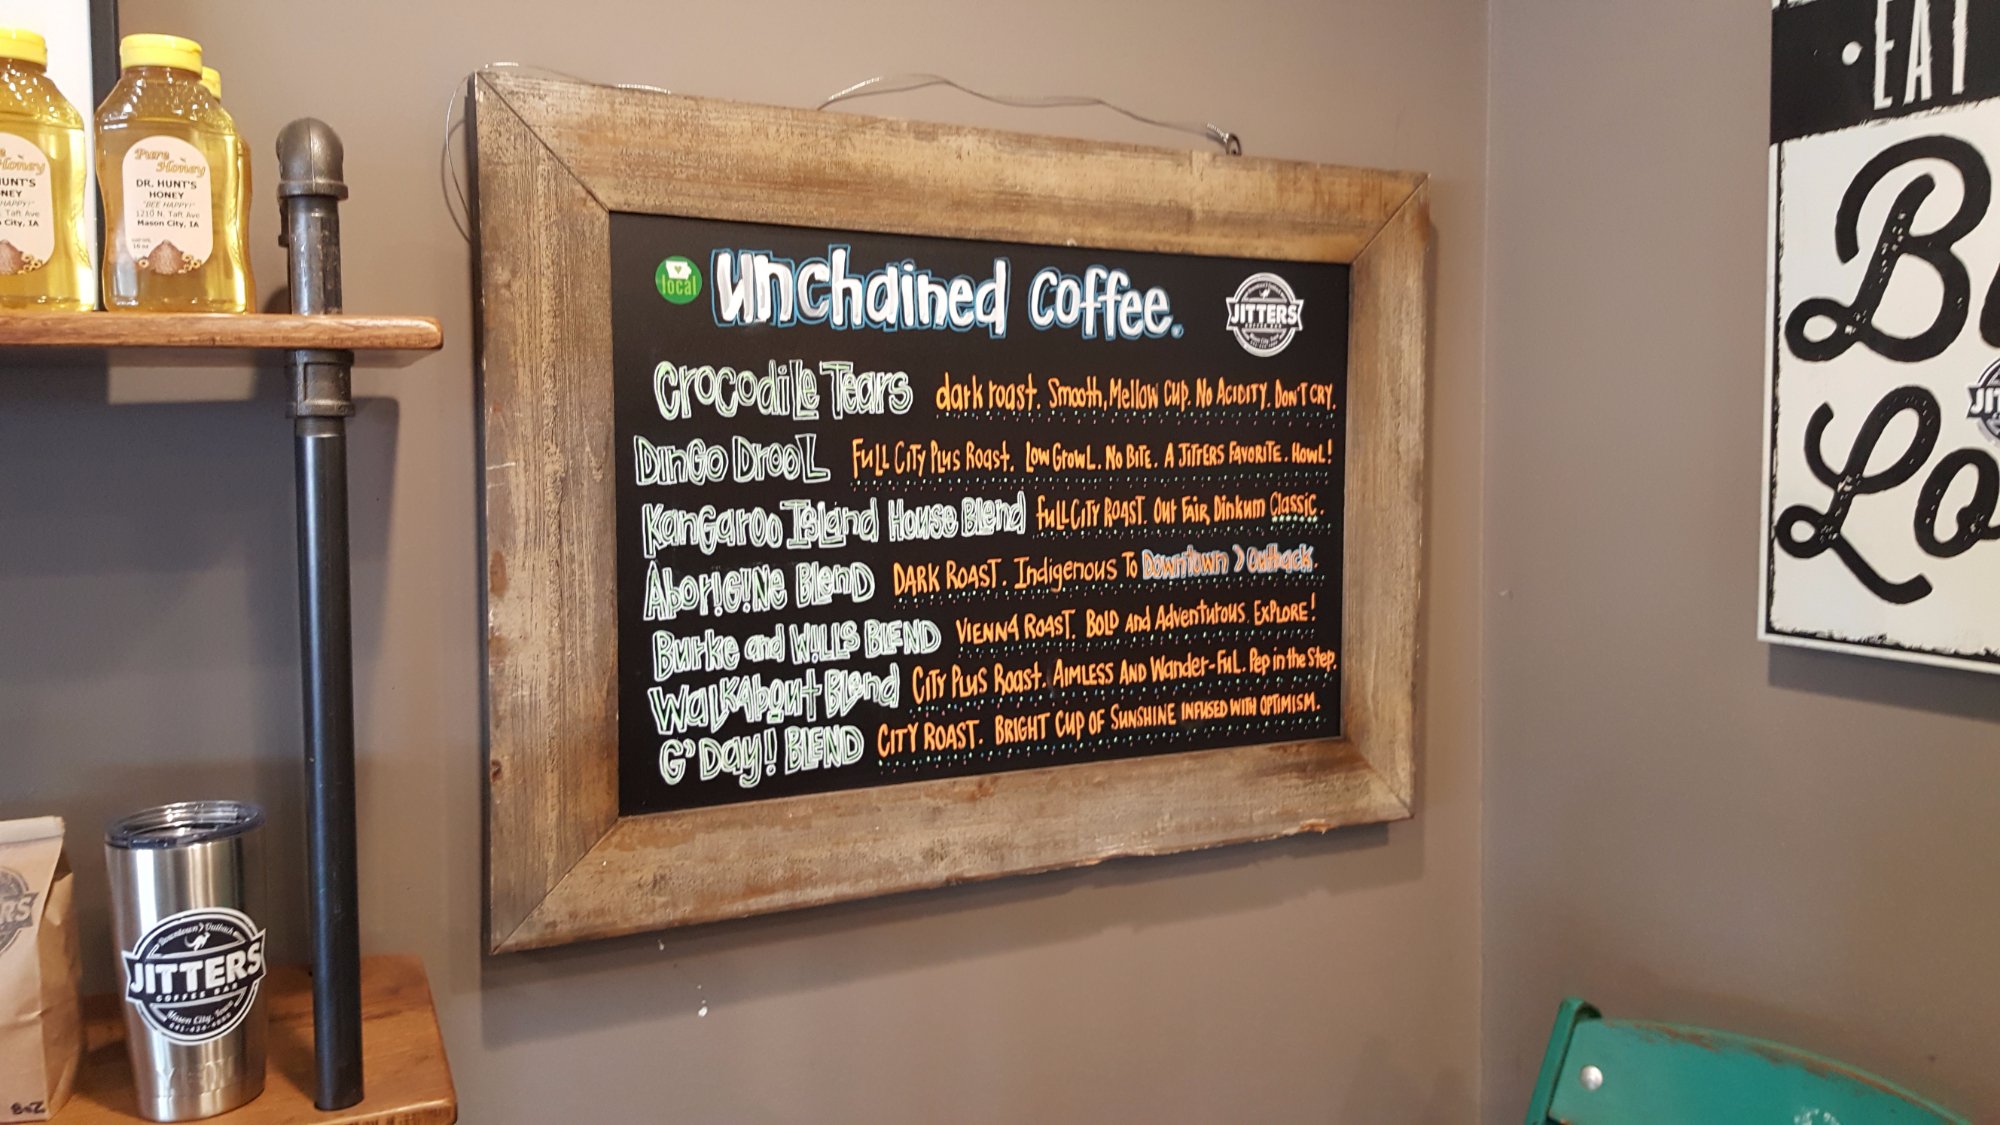 Pure
Honey
DR. HUNT'S
HONEY
"BEE HAPPY!"
1210 N. Taft Ave
Mason City, IA
16 oz
Honey
HUNT'S
Taft Ave
City, IA
local
unchained coffee.
JITTERS
COFFEE BAR
Mason City, Iowa
Crocodile Tears dark roast. Smooth, Mellow Cup. No Acidity. Don't Cry.
Dingo Drool Full City Plus Roast. Low Growl. No Bite. A Jitters Favorite. Howl!
Kangaroo Island House Blend Full City Roast. Our Fair Dinkum Classic.
Aborigine Blend Dark Roast. Indigenous To Downtown > Outback.
Burke and Wills Blend Vienna Roast. Bold and Adventurous. Explore!
Walkabout Blend City Plus Roast. Aimless and Wander-Ful. Pep in the Step.
G'Day! Blend City Roast. Bright Cup of Sunshine infused with optimism.
Downtown > Outback
JITTERS
COFFEE BAR
Mason City, Iowa
RS
8oz
• EAT
Lo
JIT